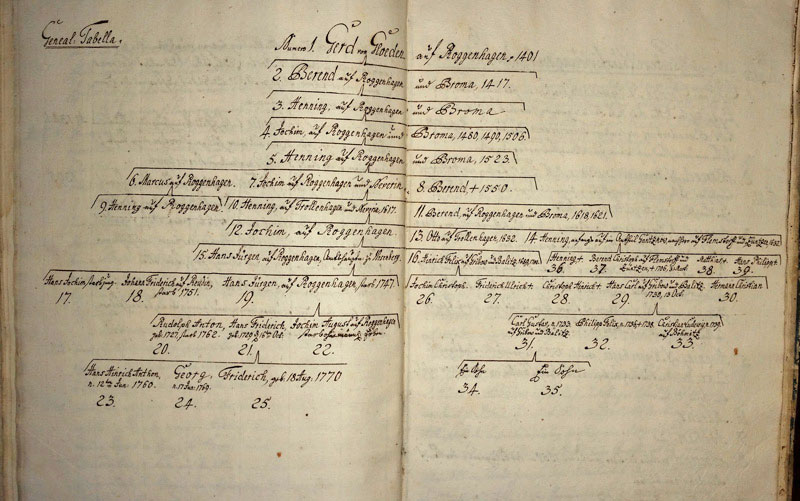 Geneal. Tabella.
Numero 1. Gerd von Gloeden auf Roggenhagen, 1401
2. Berend auf Roggenhagen und Broma, 1417.
3. Henning, auf Roggenhagen und Broma
4. Jochim, auf Roggenhagen und Broma, 1480, 1490, 1506.
5. Henning auf Roggenhagen und Broma, 1523.
6. Marcus auf Roggenhagen. 7. Jochim auf Roggenhagen und 8. Berend + 1550.
9. Henning auf Roggenhagen. 10. Henning, auf Trollenhagen und 1617. 11. Berend, auf Roggenhagen und Broma, 1618, 1621.
12. Jochim, auf Roggenhagen. 13. Otto auf Trollenhagen, 1632. 14. Henning, auf
15. Hans Jürgen, auf Roggenhagen, 16. Henning + Berend Christoph auf Matthias + Hans Philipp +
36. 37. 38. 39.
Hans Jochim, starb jung. Johann Friderich auf starb 1751. Hans Jürgen, auf Roggenhagen, starb 1747. Jochim Christoph. Friderich Ulrich + Christoph Hinrich + Hans Carl auf 1738, 13 Oct. Hermann Christian
17. 18. 19. 26. 27. 28. 29. 30.
Rudolph Anton, Hans Friderich, Jochim August auf Roggenhagen Carl Gustav, n. 1733. Philipp Felix, n. 1736 + 1738. Christian Ludewig n. 1739.
geb. 1727, starb 1762. geb. 1729,
20. 21. 22. 31. 32. 33.
Hans Hinrich Anthon, Georg, Friderich, geb. 18 Aug. 1770 Ein Sohn Ein Sohn
n. 12ten Jun. 1760. n. 17 Jun. 1769.
23. 24. 25. 34. 35.